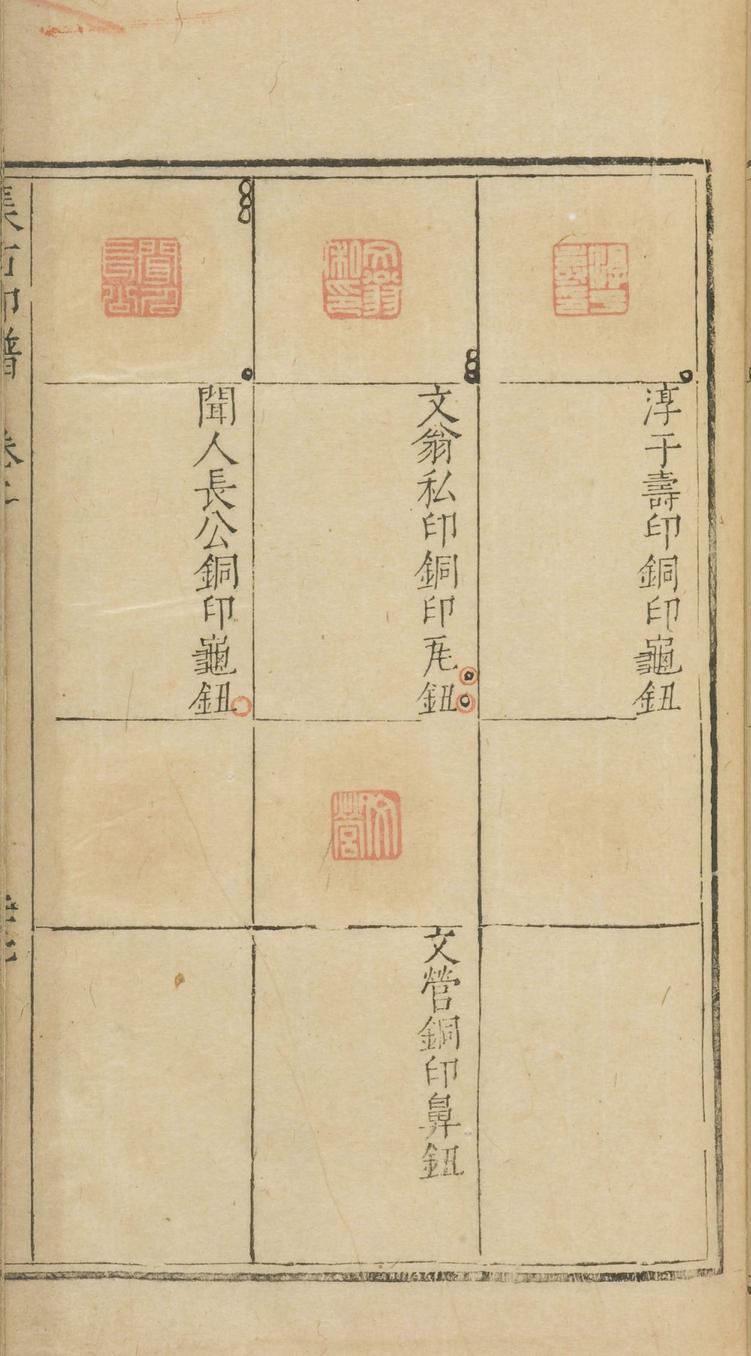 淳于壽印銅印龜鈕
文翁私印銅印瓦鈕
文營銅印鼻鈕
聞人長公銅印龜鈕
集古印譜 卷二